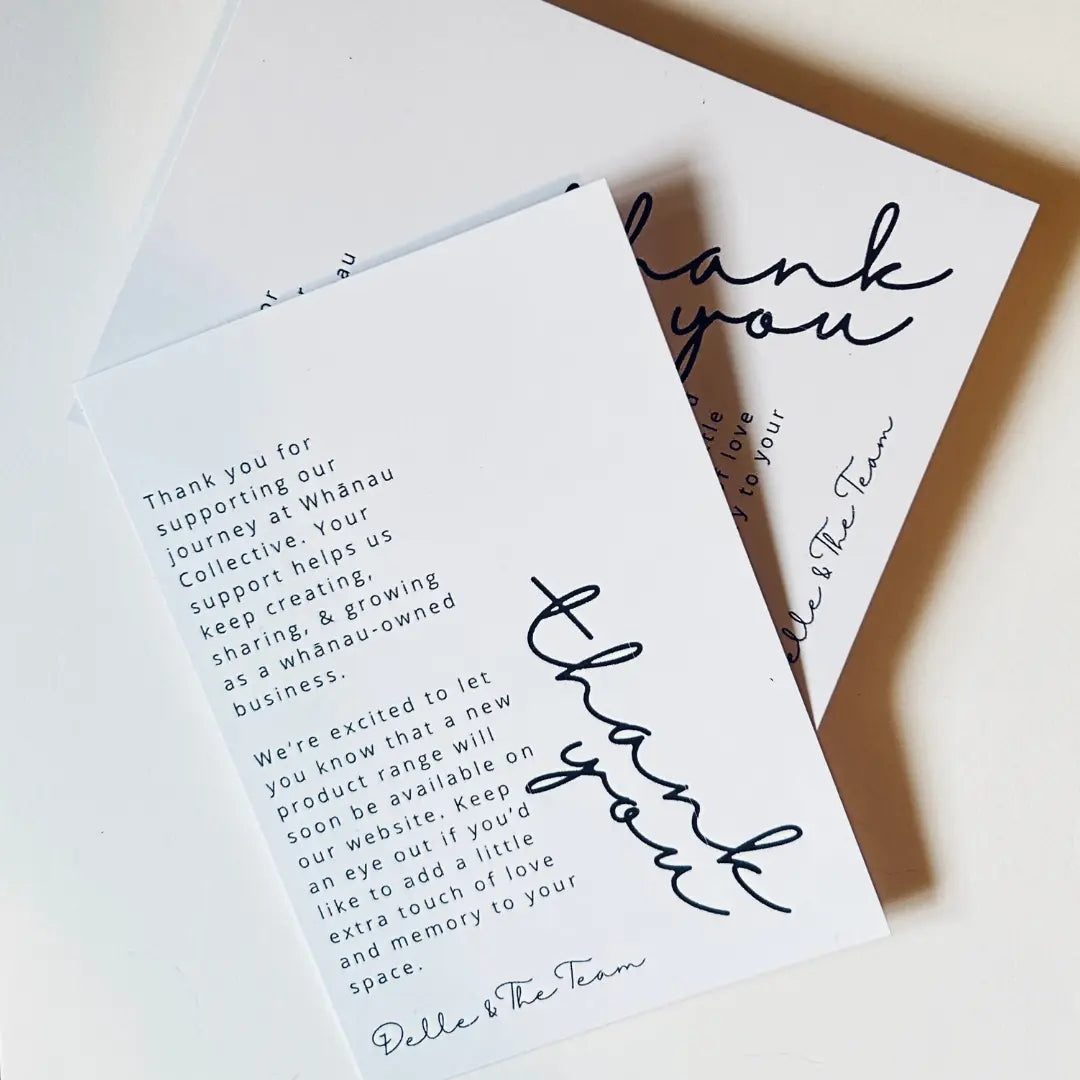 Thank you for
supporting our
journey at Whānau
Collective. Your
support helps us
keep creating,
sharing, & growing
as a whānau-owned
business.
We're excited to let
you know that a new
product range will
soon be available on
our website. Keep
an eye out if you'd
like to add a little
extra touch of love
and memory to your
space.
Delle & The Team
thank
you
you
love
to your
& The Team